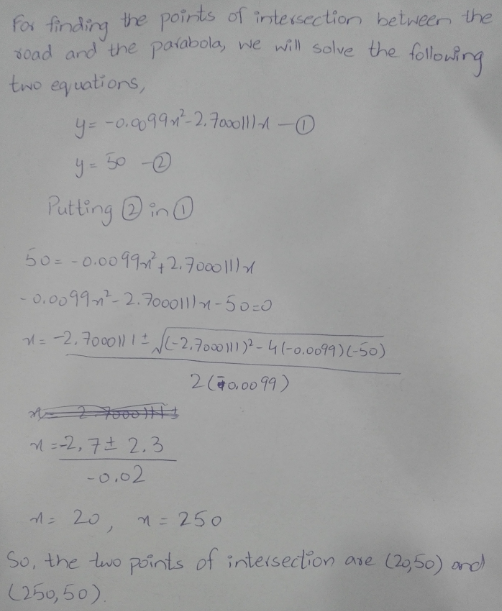 For finding the points of intersection between the
road and the parabola, we will solve the following
two equations,
y = -0.0099x² - 2.7000111x - ①
y = 50 - ②
Putting ② in ①
50 = -0.0099x² + 2.7000111x
-0.0099x² - 2.7000111x - 50 = 0
x = -2.7000111 ± √(-2.7000111)² - 4(-0.0099)(-50)
2(-0.0099)
x = -2.7 ± 2.3
-0.02
x = 20, x = 250
So, the two points of intersection are (20,50) and
(250,50).